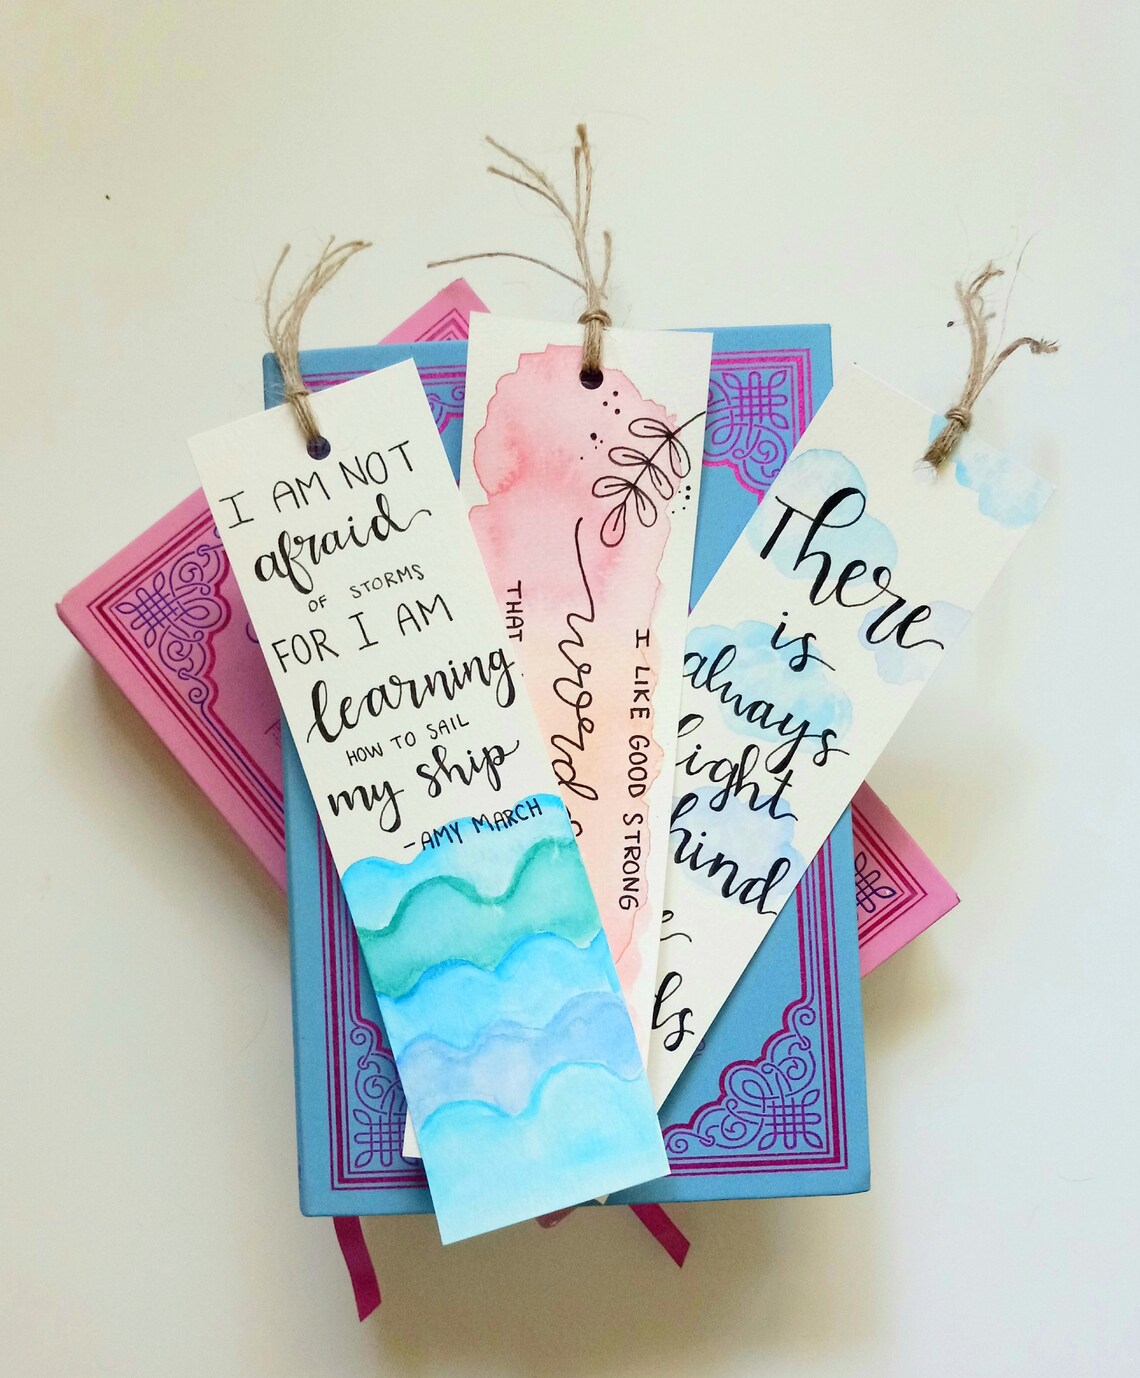 I AM NOT
afraid
OF STORMS
FOR I AM
learning
HOW TO SAIL
my ship
-AMY MARCH
I LIKE GOOD STRONG
words
THAT
There
is
always
light
hind
ds